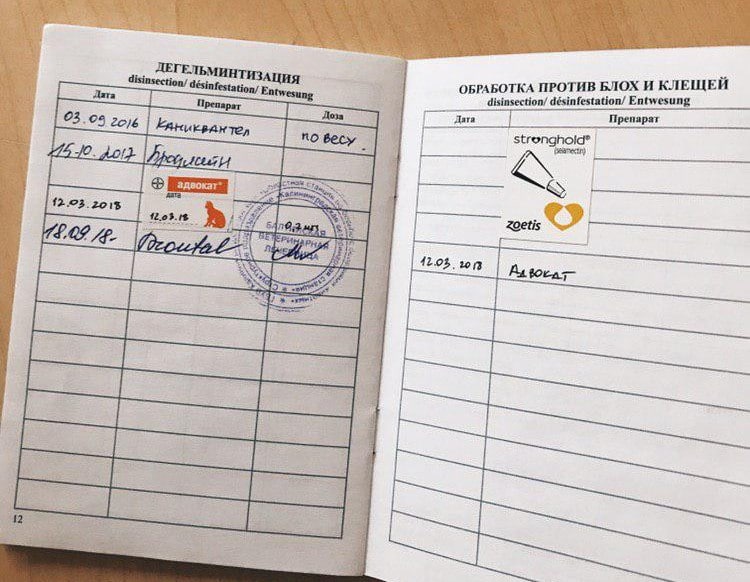 ДЕГЕЛЬМИНТИЗАЦИЯ
disinsection/ désinfestation/ Entwesung
Дата Препарат Доза
03.09.2016 КАНИКВАНТЕЛ ПО ВЕСУ.
15.10.2017
адвокат®
дата
12.03.2018 12.03.18
БАЛТИЙСКАЯ
ВЕТЕРИНАРНАЯ
ЛЕЧЕБНИЦА
18.09.18-
12
ОБРАБОТКА ПРОТИВ БЛОХ И КЛЕЩЕЙ
disinsection/ désinfestation/ Entwesung
Дата Препарат
stronghold®
(selamectin)
zoetis
12.03.2018 АДВОКАТ